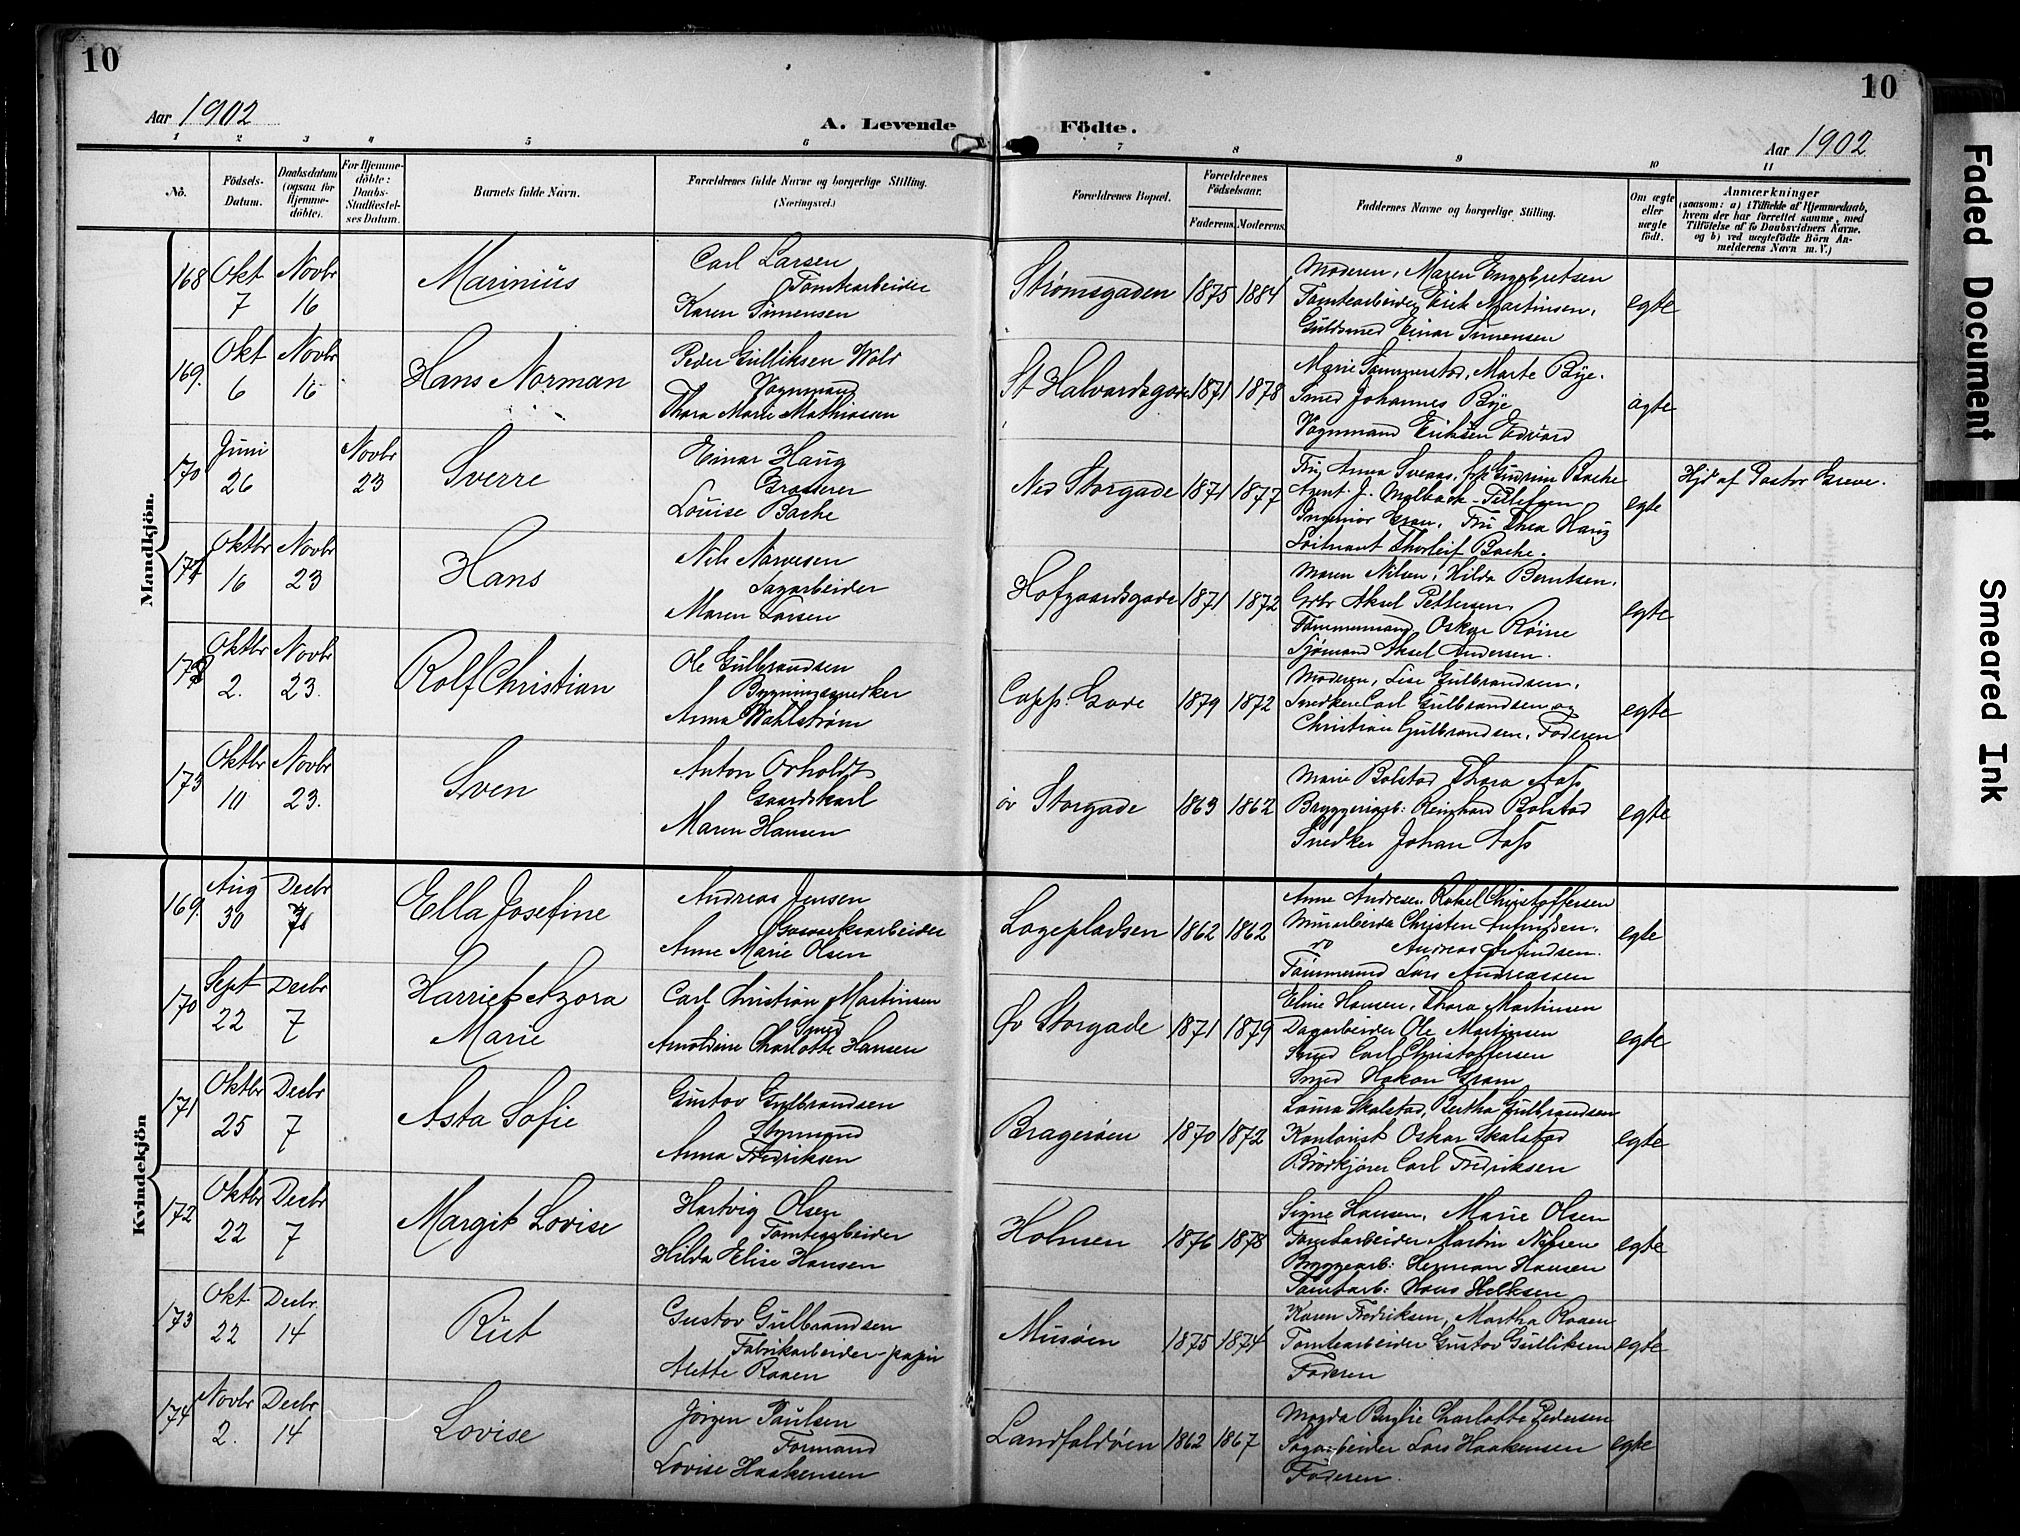 10
10
Aar 1902
A. Levende
Födte.
Aar 1902
1 2 3 4 5 6 7 8 9 10 11
No.
Födsels-Datum.
Daabsdatum (ogsaa for Hjemme-döbte).
For Hjemme-döbte: Daabs-Stadfæstel-ses Datum.
Barnets fulde Navn.
Forældrenes fulde Navne og borgerlige Stilling.
(Næringsvei.)
Forældrenes Bopæl.
Forældrenes Födselsaar.
Faderens. Moderens.
Faddernes Navne og borgerlige Stilling.
Om ægte eller uægte födt.
Anmærkninger
(saasom: a) i Tilfælde af Hjemmedaab,
hvem der har forrettet samme, med
Tilföielse af to Daabsvidners Navne.
og b) ved uægtefödte Börn An-
melderens Navn m. V.)
Mandkjön.
168 Okt 7 Novbr 16 Marinius
Carl Larsen
Tomtearbeider
Karen Simensen
Strømsgaden 1875 1884
Moderen, Maren Engebretsen
Tomtearbeider Erik Martinsen,
Guldsmed Einar Simensen
egte
169. Okt 6 Novbr 16 Hans Norman
Peder Gulliksen Wold
Vognmand
Thora Marie Mathiassen
St Halvardsgade 1871 1878
Marie Sammerstad, Marte Bye.
Smed Johannes Bye
Vognmand Eriksen Edvard
ægte
170 Juni 26 Novbr 23 Sverre
Einar Haug
Grosserer
Louise Bache
Ned Storgade 1871 1877
Fru Anna Sveaas, frk Gudrun Bache
Agent J. Malbach-Tellefsen
Ingeniør Gran, Fru Thea Haug
Løitnant Thorleif Bache.
egte
Hjd af Pastor Greve.
171 Oktbr 16 Novbr 23 Hans
Nils Narvesen
Sagarbeider
Maren Larsen
Hofgaardsgade 1871 1872
Maren Nilsen, Hilda Berntsen,
Grbr Aksel Pettersen,
Tømmermand Oskar Røine
Sjømand Aksel Andersen.
egte
172 Oktbr 2. Novbr 23. Rolf Christian
Ole Gulbrandsen
Bygningssnedker
Anna Wahlstrøm
Capp. Gade 1879 1872
Moderen, Lise Gulbrandsen,
Snedkere Carl Gulbrandsen og
Christian Gulbrandsen, Faderen
egte
173 Oktbr 10 Novbr 23. Sven
Anton Orholdt
Gaardskarl
Maren Hansen
øv Storgade 1863 1862
Marie Bolstad Thora Aass
Bryggeriarb: Reinhard Bolstad
Snedker Johan Aass
egte
Kvindekjön
169. Aug 30 Decbr 7 Ella Josefine
Andreas Jensen
Gasværksarbeider
Anne Marie Olsen
Løgepladsen 1862 1862
Anne Andresen Rakel Christoffersen
Murarbeider Christen Arfindsen,
do Andreas Arfindsen.
Tømmermd Lars Andreassen
egte
170 Sept 22 Decbr 7 Harriet Azora
Marie
Carl Christian Martinsen
Smed
Arnoldine Charlotte Hansen
Øv Storgade 1871 1879
Eline Hansen, Thora Martinsen
Dagarbeider Ole Martinsen
Smed Carl Christoffersen
Smed Hakon Gram
egte
171 Oktbr 25 Decbr 7 Asta Sofie
Gustav Gulbrandsen
Styrmand
Anna Fredriksen
Bragerøen 1870 1872
Laura Skalstad, Bertha Gulbrandsen
Kontorist Oskar Skalstad
Brødkjører Carl Fredriksen
egte
172 Oktbr 22 Decbr 7 Margit Lovise
Hartvig Olsen
Tomtearbeider
Hilda Elise Hansen
Holmen 1876 1878
Signe Hansen, Marie Olsen
Tomtarbeider Martin Nilsen
Bryggearb: Herman Hansen
Tomtarb: Hans Helksen
egte
173 Okt 22 Decbr. 14 Rut
Gustav Gulbrandsen
Fabrikarbeider-papir
Alette Raaen
Musøen 1875 1874
Karen Fredriksen, Martha Raaen
Tomtearbeider Gustav Gulliksen
Faderen
egte
174 Novbr 2. Decbr 14 Lovise
Jörgen Paulsen
Formand
Lovise Haakensen
Landfaldøen 1862 1867
Magda Charlotte Pedersen
Sagarbeider Lars Haakensen
Faderen.
egte
Faded Document
Smeared Ink